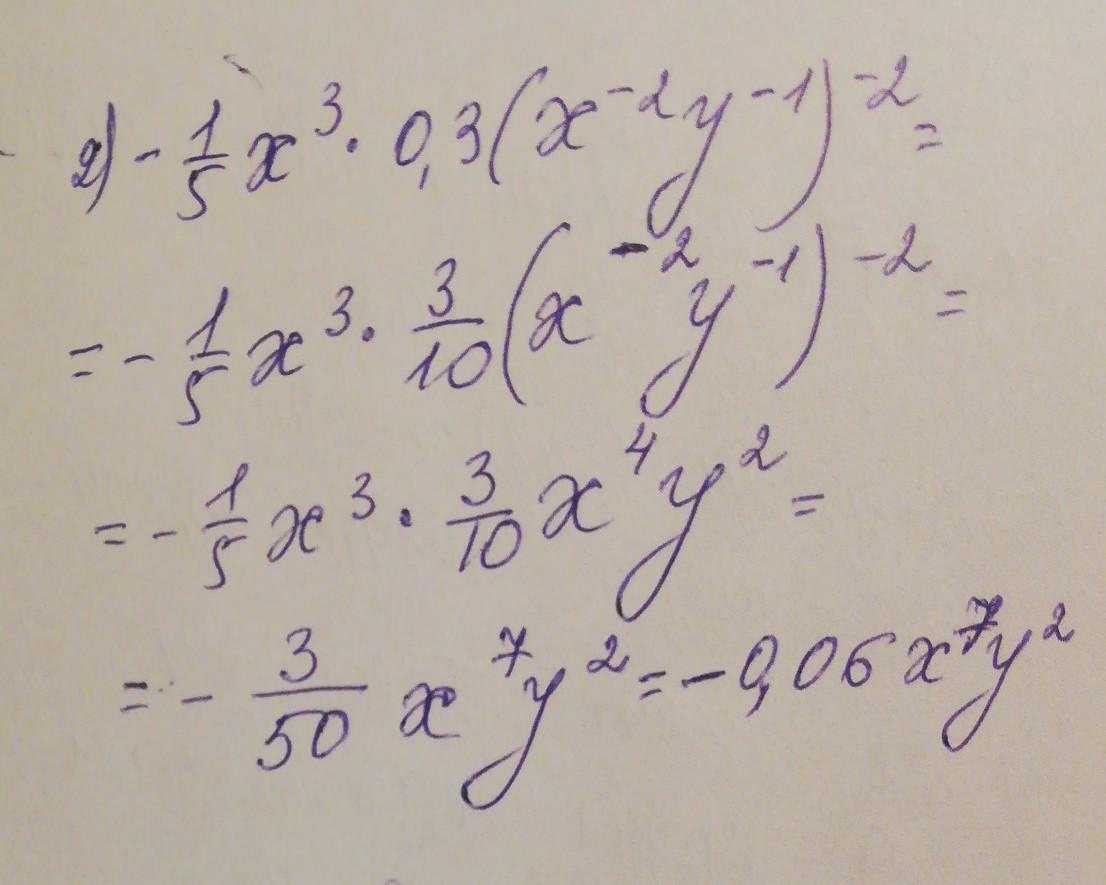 2) - 1/5 x^3 · 0,3 (x^-2 y^-1)^-2 =
= - 1/5 x^3 · 3/10 (x^-2 y^-1)^-2 =
= - 1/5 x^3 · 3/10 x^4 y^2 =
= - 3/50 x^7 y^2 = - 0,06 x^7 y^2